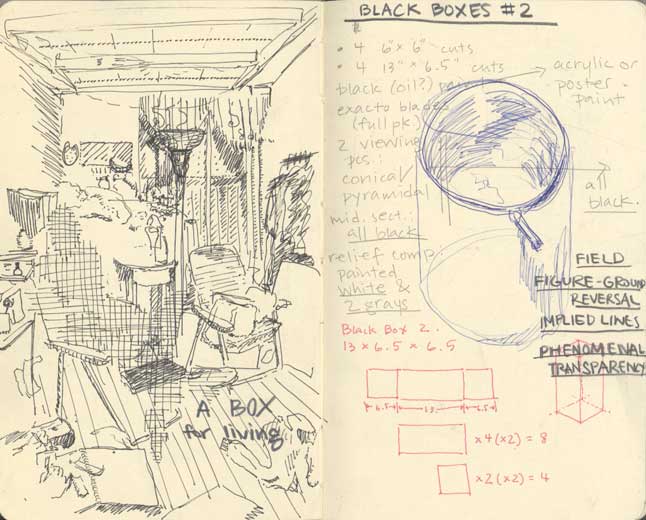 A BOX
for living
BLACK BOXES #2
• 4 6"x 6" cuts
• 4 13" x 6.5" cuts
black (oil?)
exacto blades
(full pk.)
2 viewing
pcs.:
conical
pyramidal
mid. sect.:
all black
relief comp
painted
white &
2 grays
acrylic or
poster
paint
all
black.
FIELD
FIGURE-GROUND
REVERSAL
IMPLIED LINES
PHENOMENAL
TRANSPARENCY
Black Box 2.
13 x 6.5 x 6.5
6.5 13 6.5
x4 (x2) = 8
x2 (x2) = 4